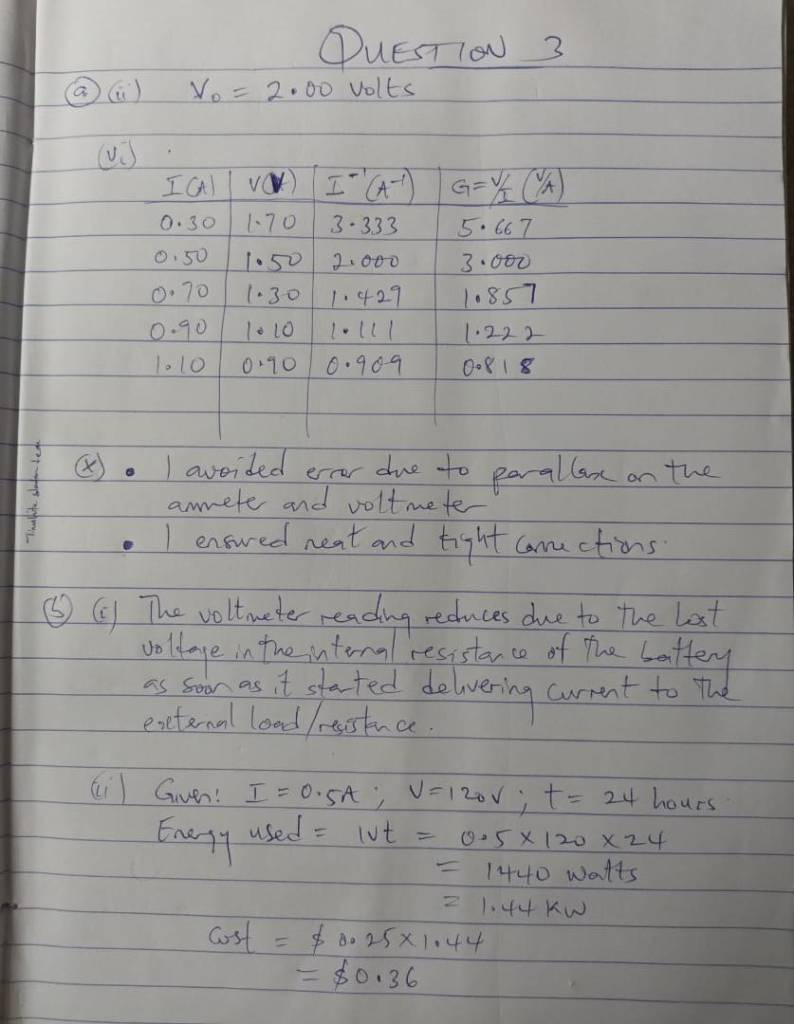 QUESTION 3
(a) (ii) V₀ = 2.00 Volts
(vi)
I(A) V(V) I⁻¹(A⁻¹) G=V/I (V/A)
0.30 1.70 3.333 5.667
0.50 1.50 2.000 3.000
0.70 1.30 1.429 1.857
0.90 1.10 1.111 1.222
1.10 0.90 0.909 0.818
(x) • I avoided error due to parallax on the
ammeter and voltmeter
• I ensured neat and tight connections.
(b) (i) The voltmeter reading reduces due to the lost
voltage in the internal resistance of the battery
as soon as it started delivering current to the
external load/resistance.
(ii) Given: I = 0.5A; V=120V; t = 24 hours.
Energy used = IVt = 0.5 × 120 × 24
= 1440 watts
= 1.44 KW
Cost = $ 0.25 × 1.44
= $0.36